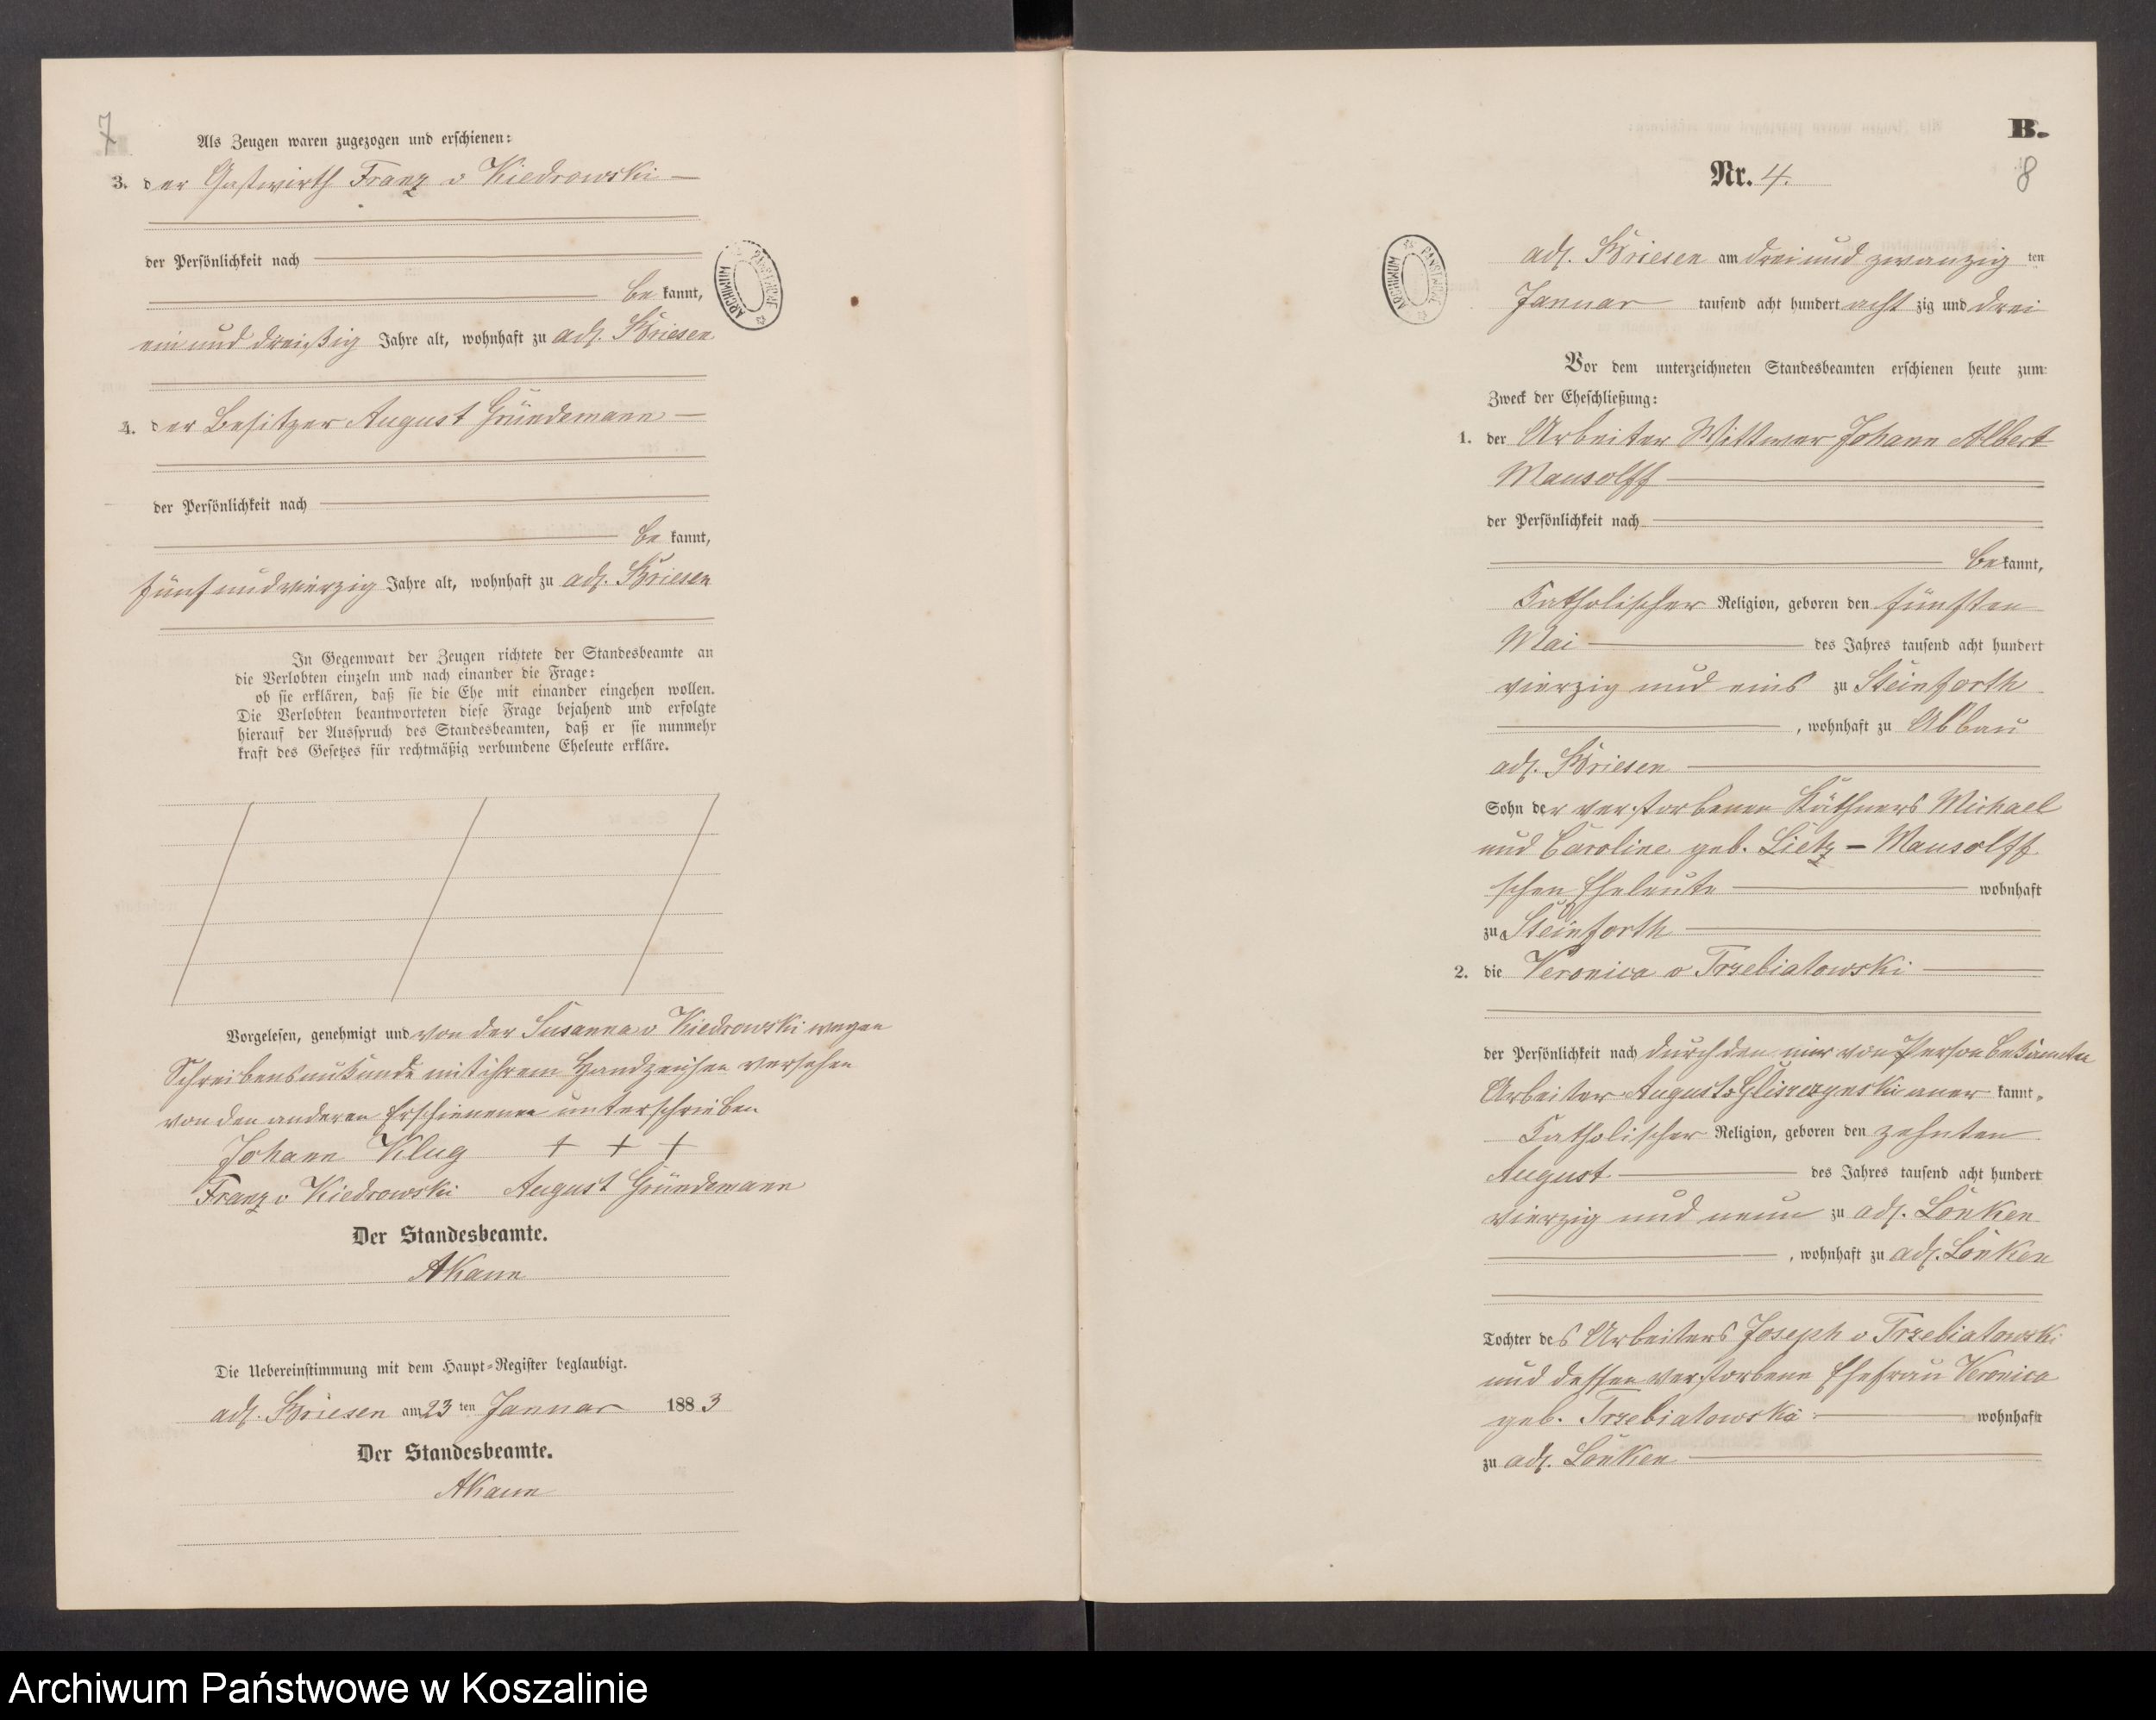 7
Als Zeugen waren zugezogen und erschienen:
3. der Gastwirth Franz v Kiedrowski —
der Persönlichkeit nach
bekannt,
ein und dreißig Jahre alt, wohnhaft zu adl. Briesen
4. der Besitzer August Gründemann —
der Persönlichkeit nach
bekannt,
fünf und vierzig Jahre alt, wohnhaft zu adl. Briesen
In Gegenwart der Zeugen richtete der Standesbeamte an
die Verlobten einzeln und nach einander die Frage:
ob sie erklären, daß sie die Ehe mit einander eingehen wollen.
Die Verlobten beantworteten diese Frage bejahend und erfolgte
hierauf der Ausspruch des Standesbeamten, daß er sie nunmehr
kraft des Gesetzes für rechtmäßig verbundene Eheleute erkläre.
Vorgelesen, genehmigt und von der Susanna v Kiedrowski wegen
Schreibensunkunde mit ihrem Handzeichen versehen
von den anderen Erschienenen unterschrieben
Johann Klug + + +
Franz v Kiedrowski August Gründemann
Der Standesbeamte.
AKann
Die Uebereinstimmung mit dem Haupt-Register beglaubigt.
adl. Briesen am 23 ten Januar 1883
Der Standesbeamte.
AKann
ARCHIWUM PAŃSTWOWE
B.
Nr. 4.
8
ARCHIWUM PAŃSTWOWE
adl. Briesen am drei und zwanzig ten
Januar tausend acht hundert acht zig und drei
Vor dem unterzeichneten Standesbeamten erschienen heute zum
Zweck der Eheschließung:
1. der Arbeiter Wittwer Johann Albert
Mausolff
der Persönlichkeit nach
bekannt,
Katholischer Religion, geboren den fünften
Mai des Jahres tausend acht hundert
vierzig und eins zu Steinforth
, wohnhaft zu Abbau
adl. Briesen
Sohn der verstorbenen Käthners Michael
und Caroline geb. Lietz — Mausolff
schen Eheleute wohnhaft
zu Steinforth
2. die Veronica v Trzebiatowski
der Persönlichkeit nach durch den mir von Person bekannten
Arbeiter August v anerkannt,
Katholischer Religion, geboren den zehnten
August des Jahres tausend acht hundert
vierzig und neun zu adl. Lonken
, wohnhaft zu adl. Lonken
Tochter des Arbeiters Joseph v Trzebiatowski
und dessen verstorbene Ehefrau Veronica
geb. Trzebiatowska wohnhaft
zu adl. Lonken
Archiwum Państwowe w Koszalinie